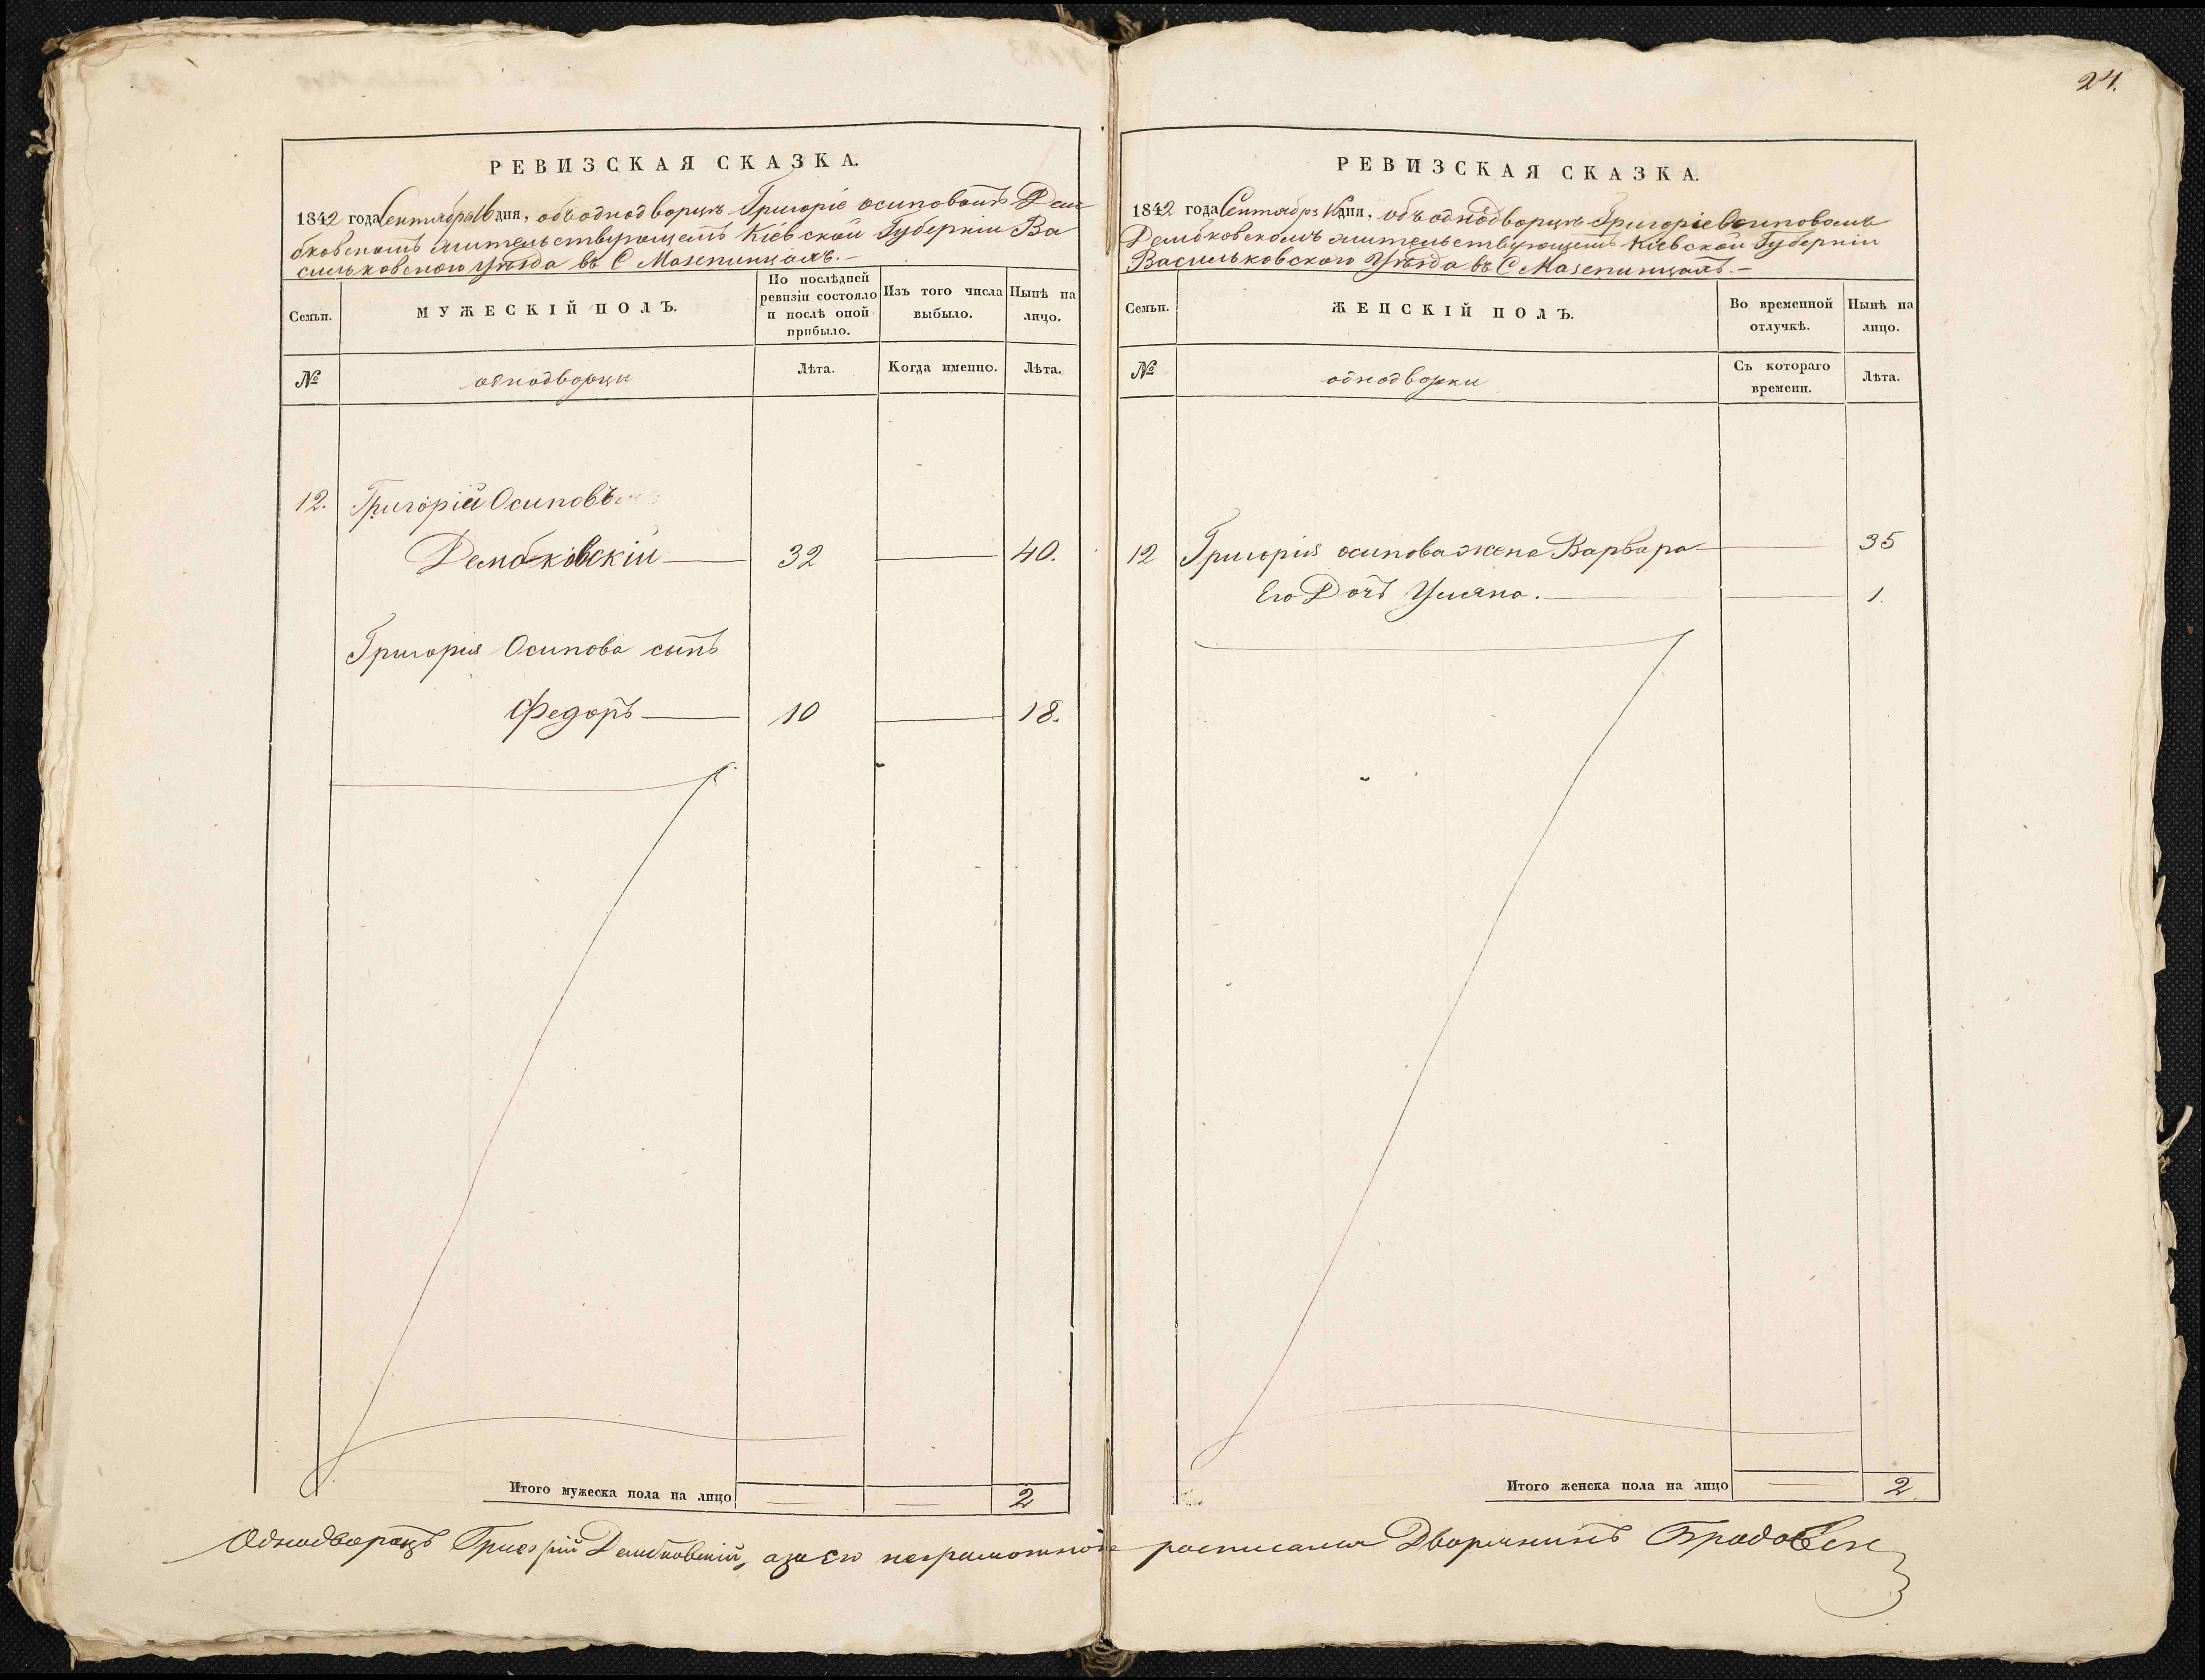 24.
РЕВИЗСКАЯ СКАЗКА.
1842 года Сентября 16 дня, объ однодворце Григоріе Осиповомъ Дем
бковскомъ жительствующемъ Кіевской Губерніи Ва
сильковского Уѣзда въ С Мазепинцахъ.—
Семьи.
МУЖЕСКІЙ ПОЛЪ.
По послѣдней ревизіи состояло и послѣ оной прибыло.
Изъ того числа выбыло.
Нынѣ на лицо.
№
однодворцы
Лѣта.
Когда именно.
Лѣта.
12. Григорій Осиповъ
Дембковскій — 32 — 40.
Григорія Осипова сынъ
Федоръ — 10 — 18.
Итого мужеска пола на лицо — — 2
РЕВИЗСКАЯ СКАЗКА.
1842 года Сентября 16 дня, объ однодворце Григоріе Осиповомъ
Дембковскомъ жительствующемъ Кіевской Губерніи
Васильковского Уѣзда въ С Мазепинцахъ.—
Семьи.
ЖЕНСКІЙ ПОЛЪ.
Во временной отлучкѣ.
Нынѣ на лицо.
№
однодворки
Съ котораго времени.
Лѣта.
12 Григорія Осипова жена Варвара — 35
Его Дочъ Уляна. — 1.
Итого женска пола на лицо — 2
Однодворецъ Григорій Дембковскій, а за его неграмотного росписался Дворянинъ